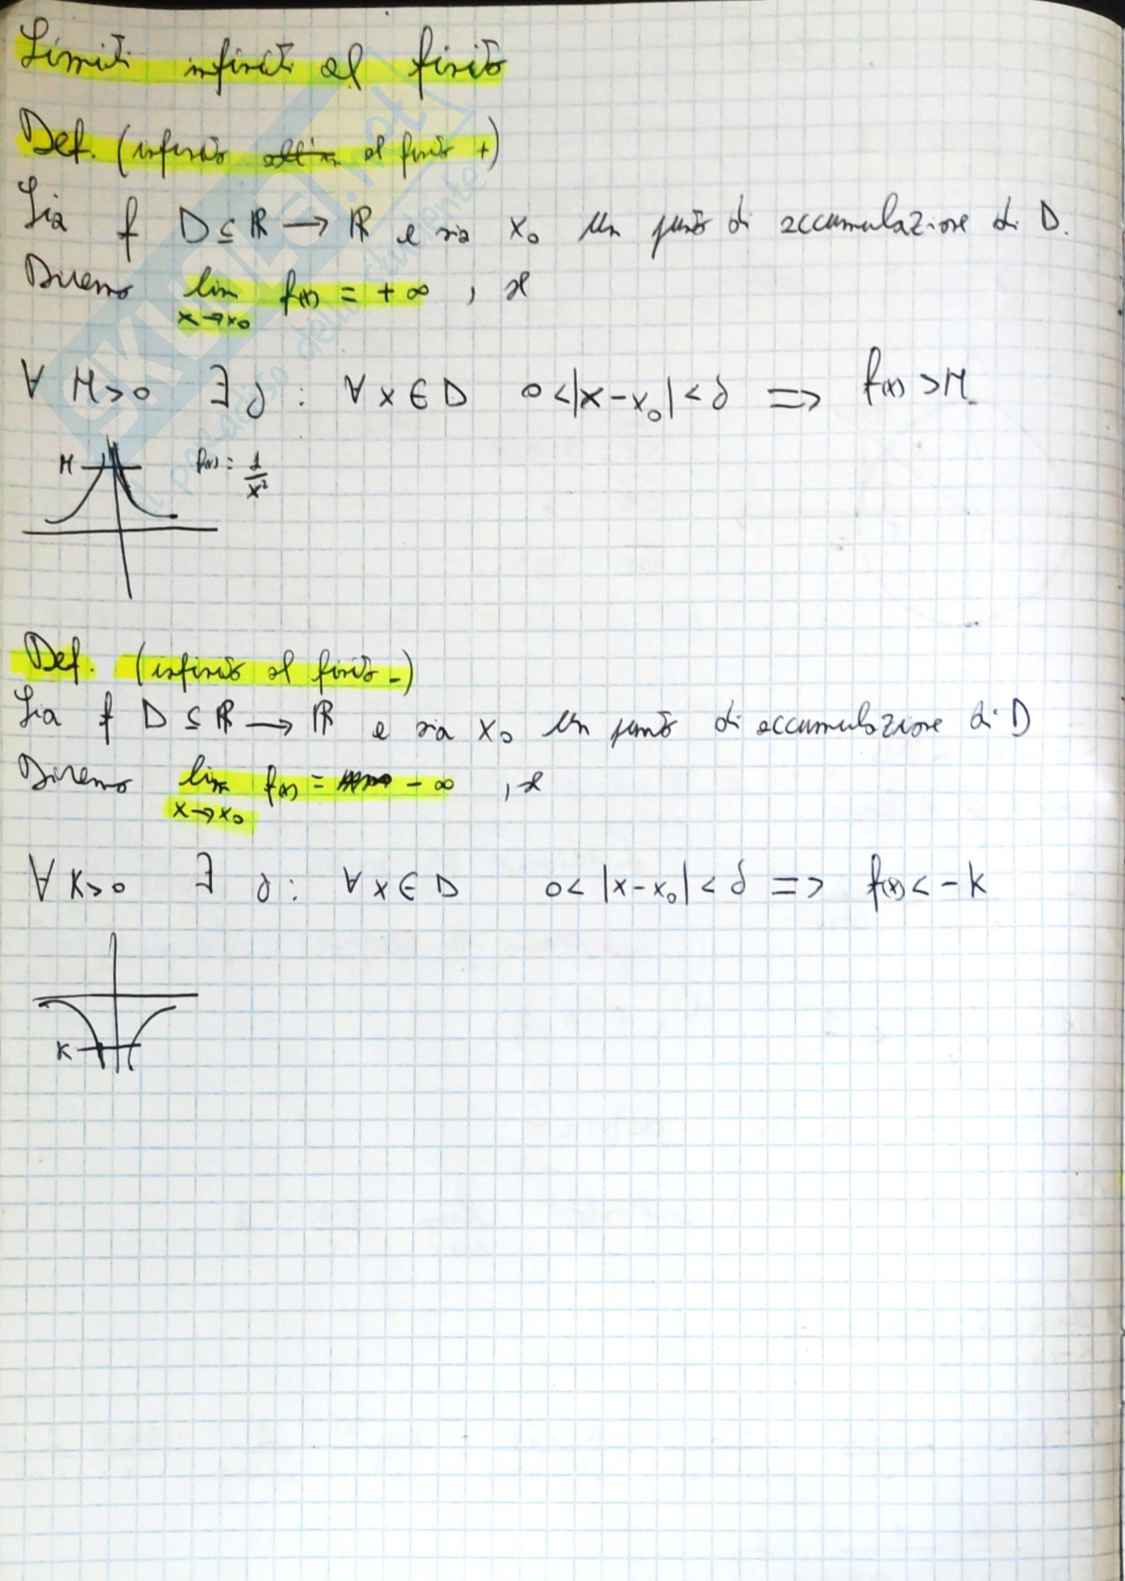 Limiti infiniti al finito
Def. (infinito al finito +)
Sia f D ⊆ ℝ → ℝ e sia x₀ un punto di accumulazione di D.
Diremo lim f(x) = +∞, se
x→x₀
∀ M>0 ∃ δ : ∀ x ∈ D 0<|x-x₀|<δ => f(x) >M
M f(x) = 1/x²
Def. (infinito al finito -)
Sia f D ⊆ ℝ → ℝ e sia x₀ un punto di accumulazione di D
Diremo lim f(x) = -∞, se
x→x₀
∀ K>0 ∃ δ : ∀ x ∈ D 0< |x-x₀| < δ => f(x) < -K
K
SKUOLA.net
il paradiso dello studente